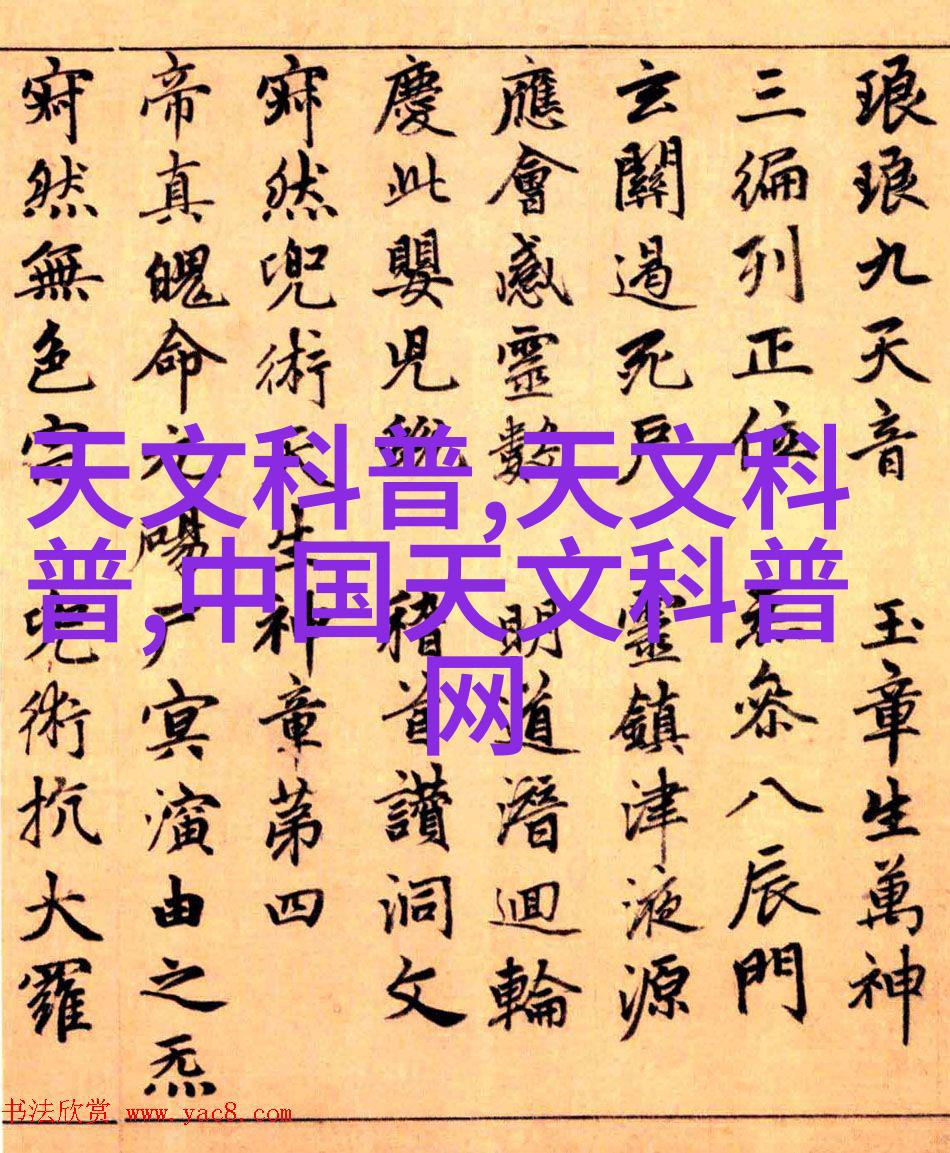 琅琅九天音 玉章生萬神
三徧列正位 參八辰門
玄關過死戶 靈鎮津液源
應會感靈數 明道潛迴輪
慶此嬰兒 稽首讚洞文
寂然兜術天生神章第四
帝真魄命元陽尸冥演由之炁
寂然無色宗兜術抗大羅
天文科普,天文科
普,中国天文科普
网
书法欣赏 www.yac8.com